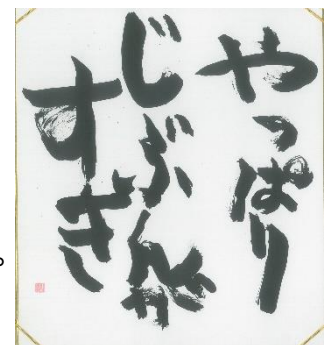 やっぱり
じぶんが
すき
。